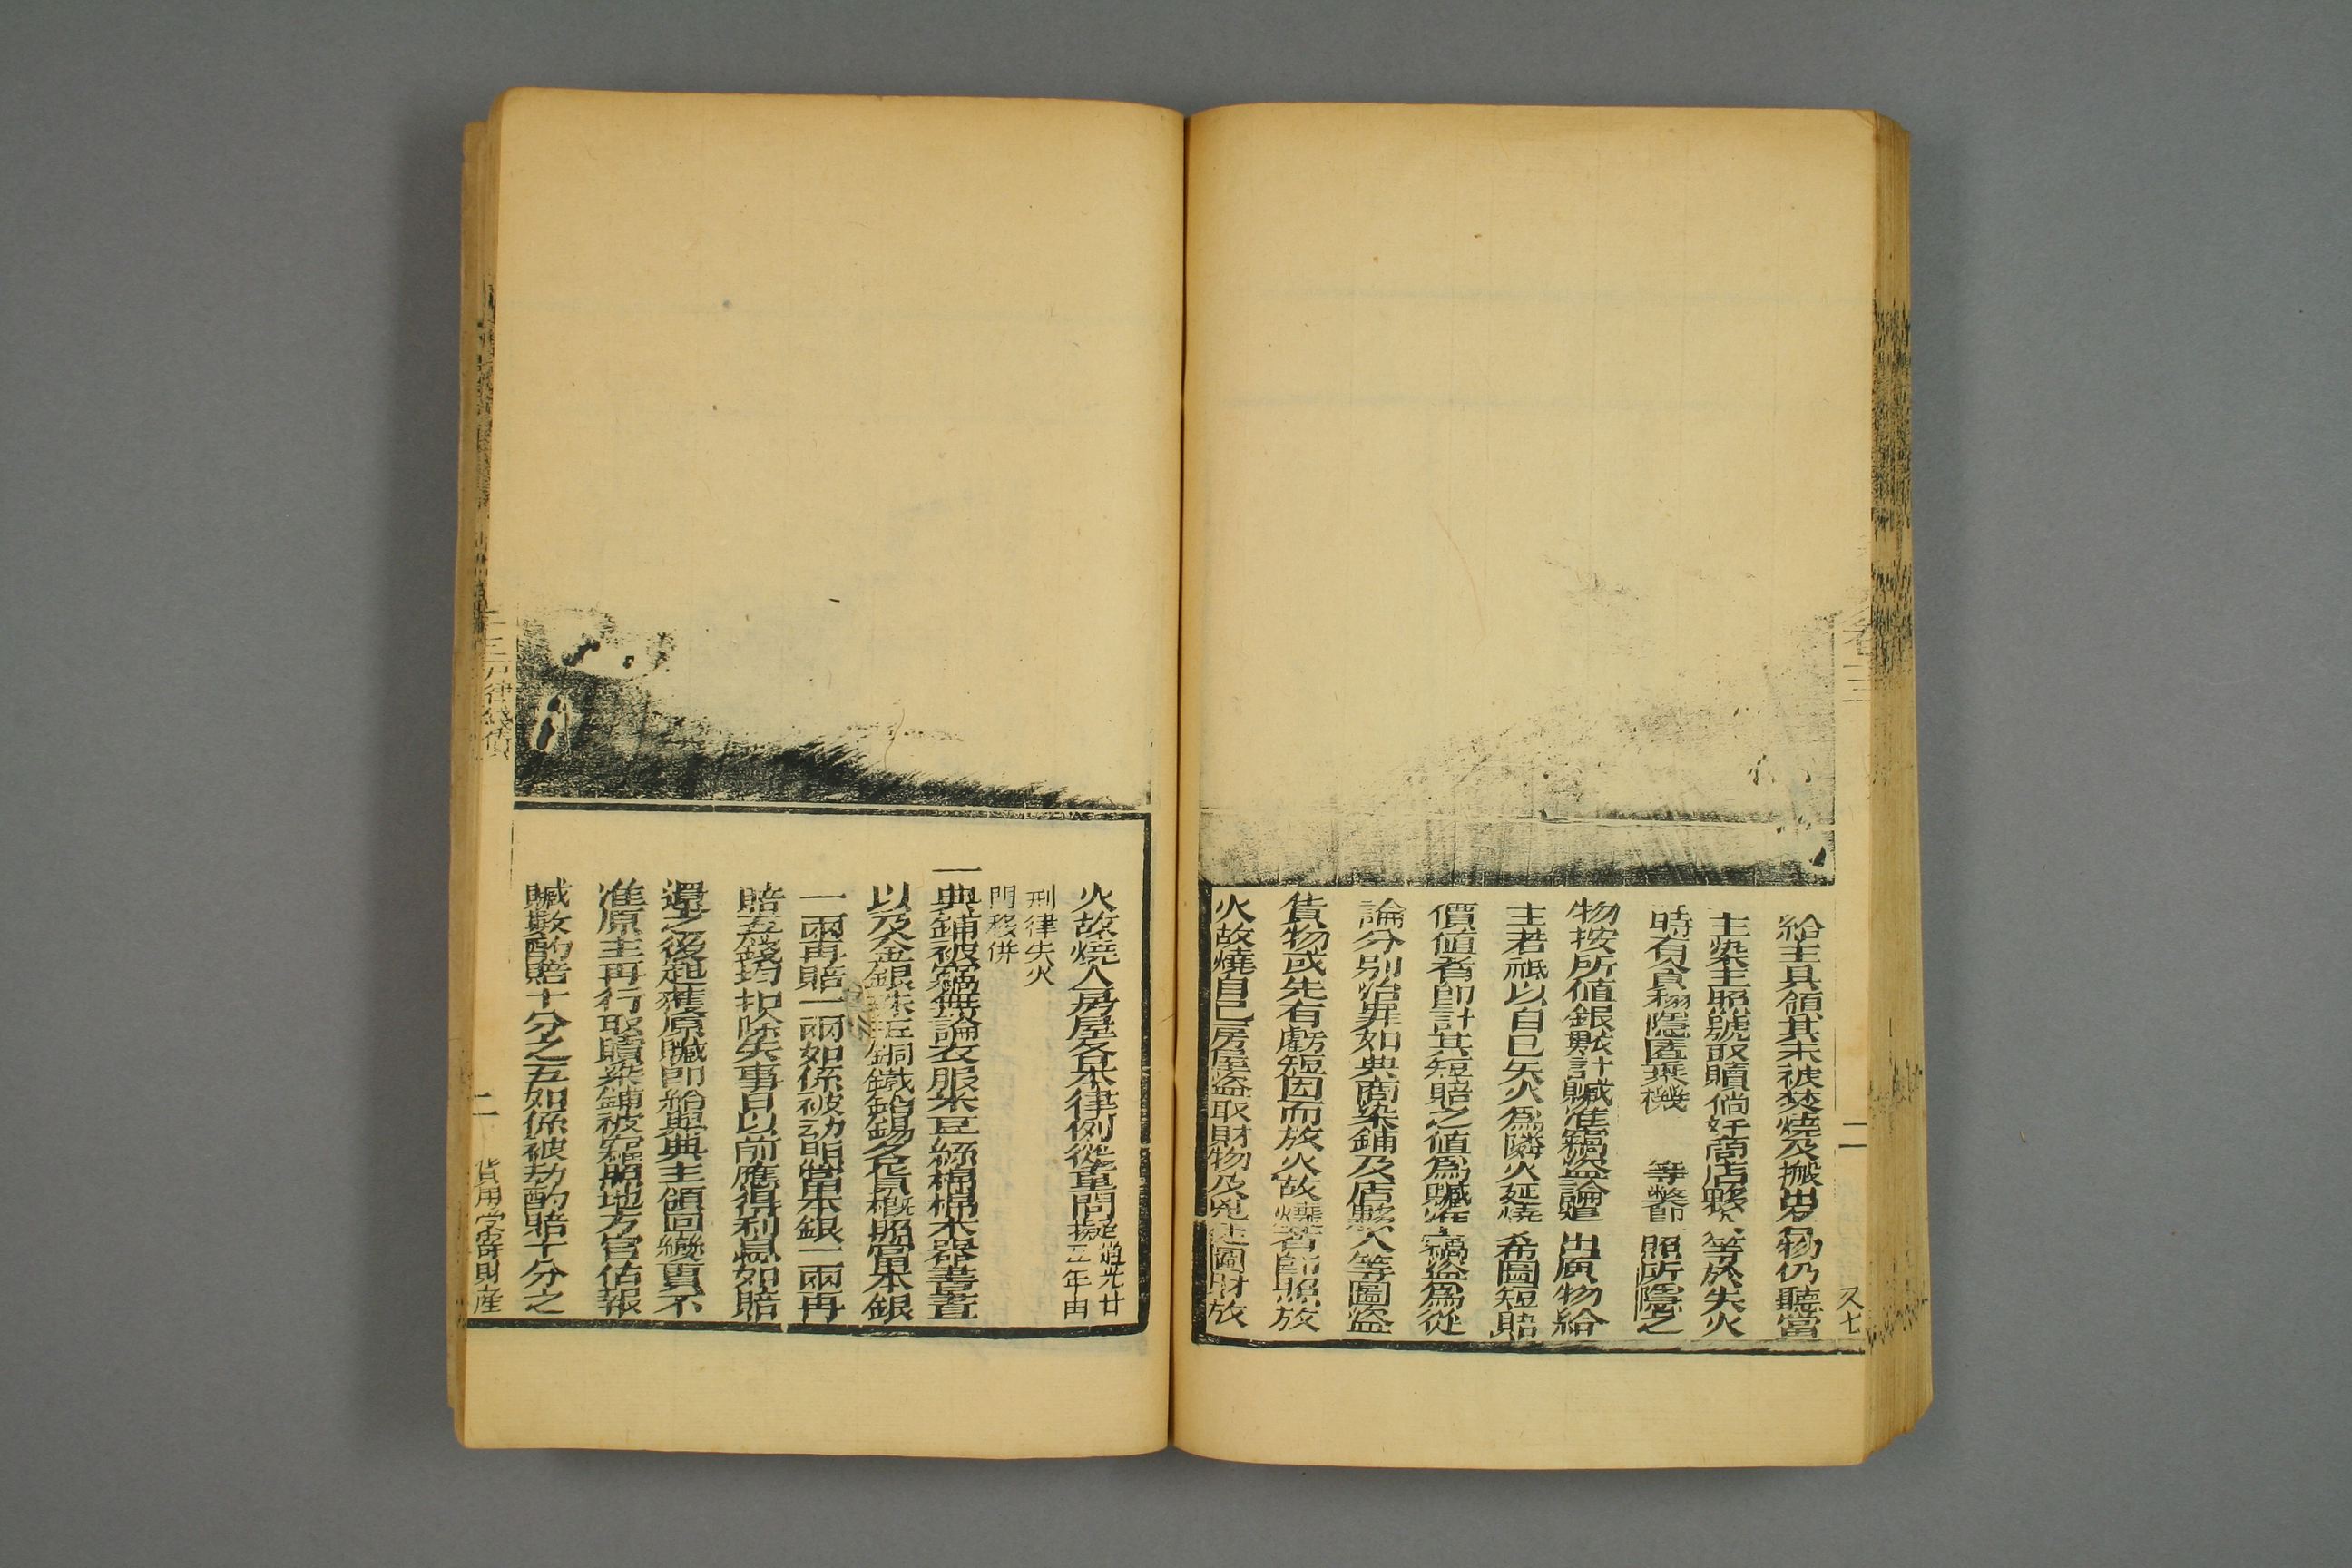 卷十三
二
又七
給主具領其未被焚燒及搬出各物仍聽當
主染主照號取贖倘奸商店夥人等於失火
時有貪利隱匿乘機 等弊即照所隱之
物按所值銀數計贓準竊盜論追出原物給
主若祗以自己失火為隣火延燒希圖短賠
價値者即計其短賠之値為贓準竊盜為從
論分别治罪如典商染鋪及店夥人等圖盜
貨物或先有虧短因而放火故燒者即照放
火故燒自己房屋盜取財物及兇徒圖財放
火故燒人房屋各本律例從重問擬道光廿三年由
刑律失火
門移併
一典鋪被竊無論衣服米豆絲棉棉木器書畫
以及金銀珠玉銅鐵鉛錫各貨概照當本銀
一兩再賠一兩如係被劫照當本銀一兩再
賠五錢均扣除失事日以前應得利息如賠
還之後起獲原贓即給與典主領回變賣不
准原主再行取贖染鋪被竊照地方官估報
贓數酌賠十分之五如係被劫酌賠十分之
十三戶律錢債
二
費用受寄財産